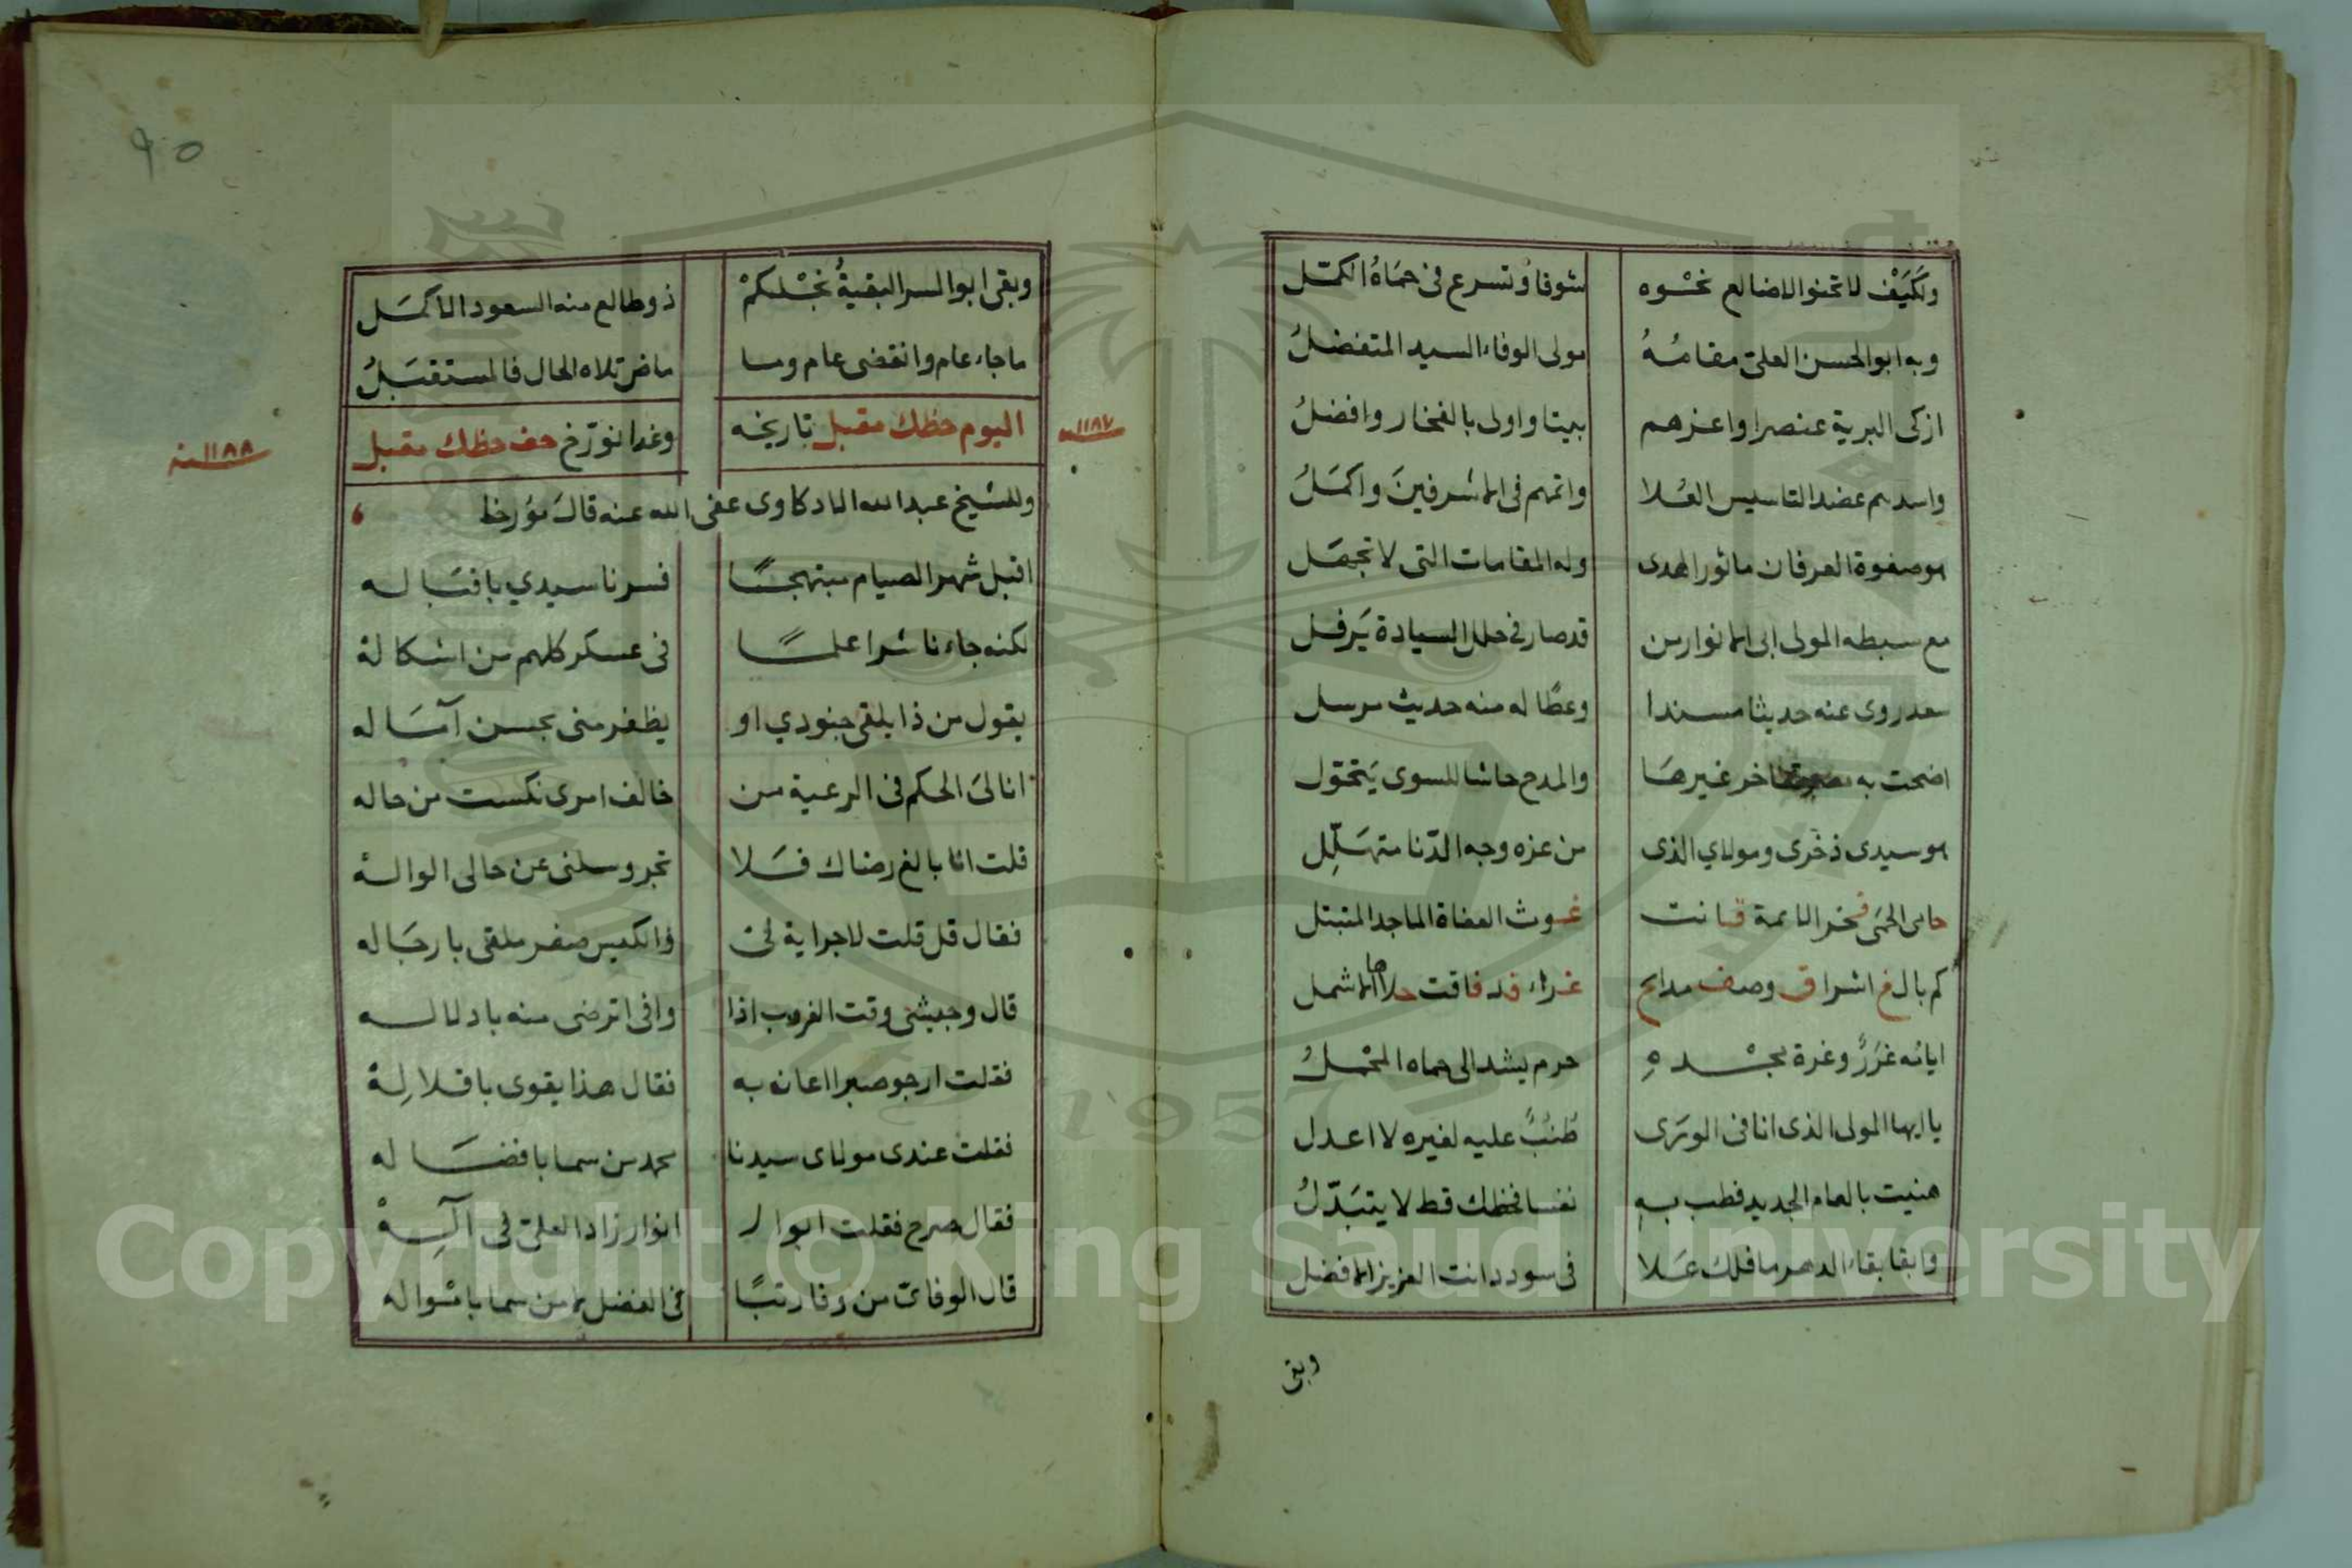 وكيف لا تحنو الاضالع نحوه شوقا وتسرع فى حماه الكمّل
وبه ابو الحسن العلىّ مقامُهُ مولى الوفاء السيد المتفضلُ
ازكى البرية عنصرا واعزهم بيتا واولى بالفخار وافضلُ
واسدهم عضدا لتاسيس العُلا واتمهم فى الاشرفينَ واكمَلُ
هو صفوة العرفان ماثور الهدى وله المقامات التى لا تجهَل
مع سبطه المولى ابى الانوار من قد صار فى حلل السيادة يَرفل
سعد روى عنه حديثا مسندا وعطا له منه حديث مرسل
اضحت به غيرها والمدح حاشا للسوى يَتحَوّل
هو سيدى ذخرى ومولاي الذى من عزه وجه الدّنا متهَلّل
حامى الحمَى فخر الائمة قانت غوث العفاة الماجد المتبتل
كم بالغ اشراق وصف مدايح غراء قد فاقت حلاها الاشمل
اياته غرَرٌ وغرة مجْدهِ حرم يشد الى حماه المحْملُ
يا ايها المولى الذى انا فى الورَى طُنُبٌ عليه لغيره لا اعدل
هنيت بالعام الجديد فطب بهِ نفسا فحظك قط لا يتبَدّلُ
وابقا بقاء الدهر ما فلك عَلا فى سودد انت العزيز الافضل
وبقى
٩٥
وبقى ابو السر البقيةُ نجْلكمْ ذو طالع منه السعود الاكمَل
ما جاء عام وانقضى عام وما ماض تلاه الحال فالمستقبَلُ
اليوم حظك مقبل تاريخه وغدا نورّخ حف حظك مقبل
١١٨٧سنة
١١٨٨سنة
وللشيخ عبد الله الادكاوى عفى الله عنه قال مؤرخا
اقبل شهر الصيام مبتهجًا فسرنا سيدي باقبَاله
لكنه جاء ناشرا علمًا فى عسكر كلهم من اشكاله
يقول من ذا يلقى جنودي او يظفر منى بحسن آمَاله
انا لىَ الحكم فى الرعية من خالف امرى نكست من حاله
قلت انا بالغ رضاك فَلا تجر وسلنى عن حالى الواله
فقال قل قلت لا جراية لى والكيس صفر ملقى بارجَاله
قال وجيشى وقت الغروب اذا وافى اترضى منه باذلاله
فقلت ارجو صبرا اعان به فقال هذا يقوى باقلالِهْ
فقلت عندى مولاى سيدنا محمد من سما بافضَاله
فقال صرح فقلت ابو ا ل انوار زاد العلىّ فى آلِهْ
قال الوفائىّ من وفا رتبًا فى الفضل يا من سما بامْواله